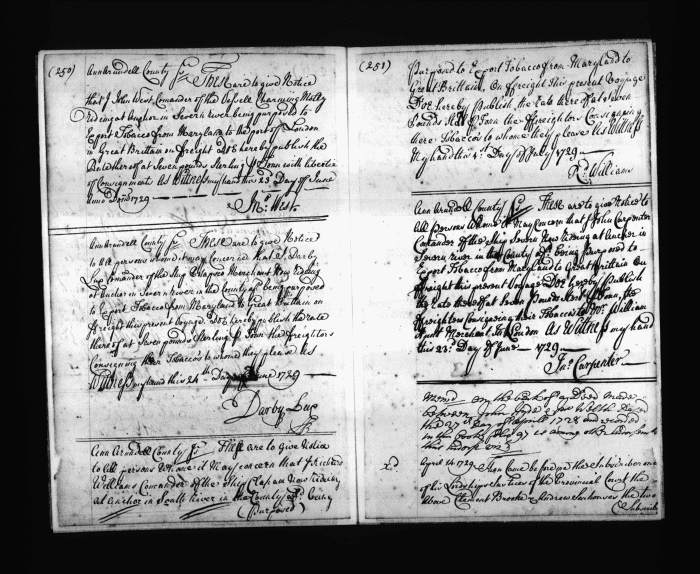 (250)
Ann Arundell County Ss These are to give Notice
that I John West, Comander of the Vessell Charming Molly
Rideing at Anchor in Severn river being purposed to
Export Tobacco from Maryland to the port of London
in Great Brittain on freight Do hereby publish the
Rate thereof at Seven pounds Sterling Tonn with libertie
of Consignments As Witness my hand this 23d Day of June
Anno Dom 1729
Jno. West.
Ann Arundell County Ss These are to give Notice
to All persons whome it may concern that I Darby
Lux Comander of the Ship Merchant Now Rideing
at Anchor in Severn river in the County afd being purposed
to Export Tobacco from Maryland to Great Brittain on
freight this present Voyage. Doe hereby publish the rate
there of at Seven pounds Sterling Tonn the freightors
Consigning their Tobaccos to whome they please As
Witness my hand this 24th Day of June 1729
Darby Lux
Ann Arundell County Ss These are to Give Notice
to All persons whome it May concern that I Richard
Williams Comander of the Ship Clapham Now rideing
at Anchor in South River in the County afd being
(Purposed)
(251)
Purposed to Export Tobacco from Maryland to
Great Brittain, On freight this present Voyage
Doe hereby Publish, the rate there of at Seven
Pounds Tonn the ffreightors Consigning
there Tobaccos to whome they please As Witness
My hand this 4th Day of July 1729
Rd. Williams
Ann Arundell County Ss These are to give Notice to
All Persons whome it May Concern that I John Carpenter
Comander of the Ship Severn Now Rideing at Anchor in
Severn river in the County afd being Purposed to
Export Tobacco from Maryland to Great Brittain On
ffreight this present Voyage Doe hereby Publish
the rate thereof at Seven Pounds Tonn, the
ffreightors Consigning their Tobaccos to Mr. William
Hunt Merchant In London As Witness my hand
this 23d Day of June 1729
Jno. Carpenter
on the back of made
between John
the 27th Day of Aprill 1728 and recorded
in the
April 14 1729 Then Came before us the Subscribers one
of his Lordships Justices of the Provincial Court the
Above Clement Brooke Andrew the two